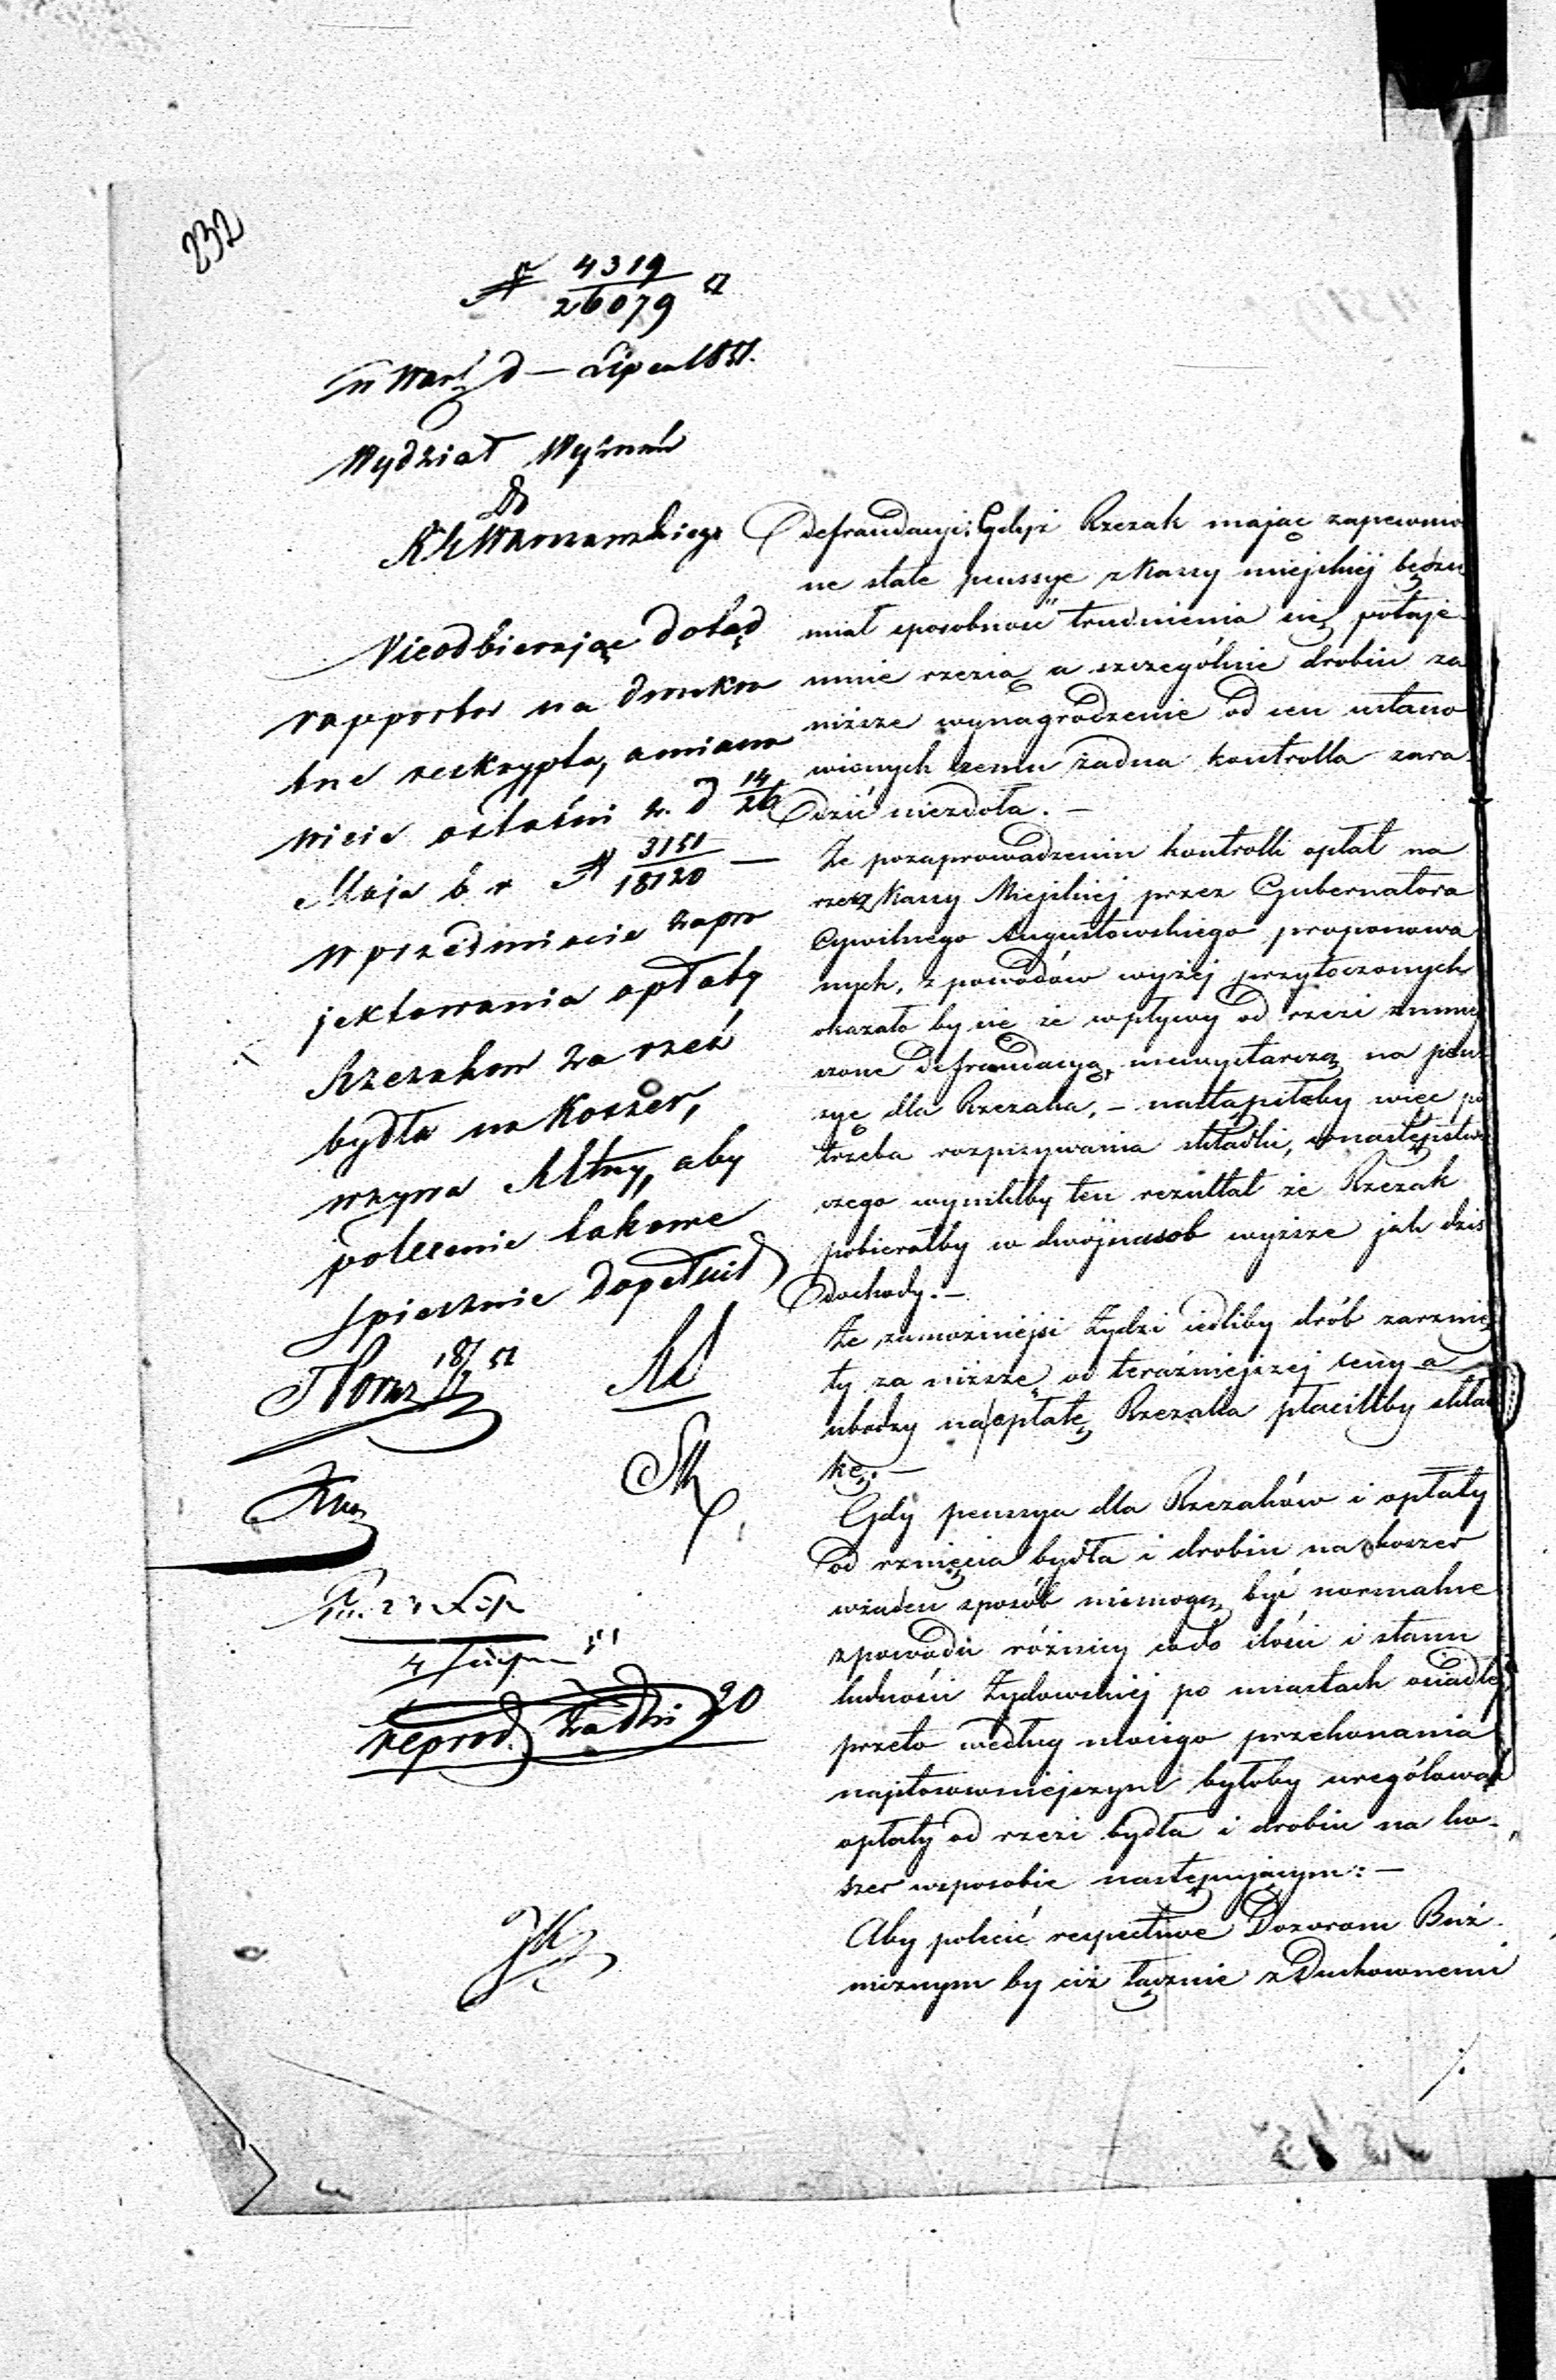 232
N 4319
26079
w Warsz d — Lipca 1851.
Wydział Wyznań
Do
R. G. Warszawskiego
Nieodbierając dotąd
rapportu na dwukro
tne reskrypta, a miano
wicie ostatni z d 14/26
Maja b r N 3151/18120 —
w przedmiocie zapro
jektowania opłaty
Rzezakom za rzeź
bydła na Koszer,
wzywa
aby
polecenie takowe
spiesznie dopełnił
18/7 51
reprod. za dni 20
defraudacyi; Gdyż Rzezak mając zapewnio
ne stałe pensye z Kassy miejskiej będzie
miał sposobność trudnienia się potaje
mnie rzezią a szczególnie drobiu za
niższe wynagrodzenie od cen ustano
wionych czemu żadna kontrolla zara
dzić niezdoła. —
Że pozaprowadzeniu kontrolli opłat na
rzecz Kassy Miejskiej przez Gubernatora
Cywilnego Augustowskiego proponowa
nych, z powodów wyżej przytoczonych
okazało by się że wpływy od rzezi zmniej
szone defraudacyą, niewystarczą na pens
syę dla Rzezaka, — nastąpiłaby więc po
trzeba rozpisywania składki, wnastępstwie
czego wynikłby ten rezultat że Rzezak
pobierałby w dwójnasob wyższe jak dziś
dochody. —
Że zamożniejsi Żydzi jedliby drób zarznię
ty za niższe od teraźniejszej ceny a
ubodzy na opłatę Rzezaka płaciliby skład
kę. —
Gdy pensya dla Rzezaków i opłaty
od rznięcia bydła i drobiu na koszer
wżaden sposób niemogą być normalne
zpowodu różnicy codo ilości i stanu
ludności Żydowskiej po miastach osiadłej
przeto według mojego przekonania
najstosowniejszym byłoby uregulować
opłaty od rzezi bydła i drobiu na ko-
szer wsposobie następującym: —
Aby polecić respective Dozorom Buż-
nicznym by ciż łącznie z Duchownemi